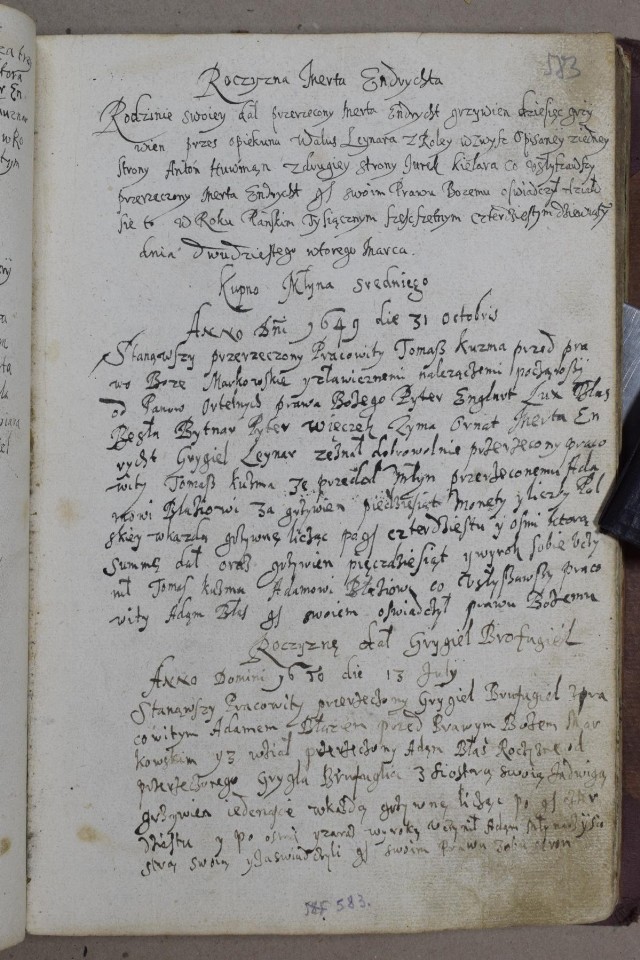 583
Roczyzna Merta Endrychta
Rodzinie swoiey dal przerzeczony Merta Endrycht grzywien dziesięc grzy
wien przes opiekuna Walus Leynara z Roley wzwysz opisaney z iedney
strony Antoń Huwman z drugiey strony Jurek Kielara co
przerzeczony Merta Endrycht gſ swoim Prawu Bozemu oswiadczył działo
sie to w Roku Pańskim Tysiącznym szescsetnym czterdziestym dziewiątym
dnia dwudziestego wtorego Marca.
Kupno Młyna sredniego
Anno Dni 1649 die 31 octobris
Stanąwszy przerzeczony Pracowity Tomasz Kuzma przed pra
wo Boze Markowskie y nalezączemi
od Panow prawa Bożego Pyter Englart Lux Błas
Beszla Bytnar Pyter Więczek Zyma Ornat Merta En
rycht Grygiel Leynar zeznał dobrowolnie przerzeczony praco
wity Tomasz Kuzma ze przedał Młyn przerzeczonemu Ada
mowi Błażowi za grzywien piędzięsiąt Monety y liczby Pol
skiey w kazdą grzywnę licząc po gſ czterdziestu y osmi ktorą
summę dał oraz grzywien pięczdziesiąt y wyrok sobie uczy
nił Tomasz Kuzma Adamowi Błażiowi co Usłyszawszy Praco
wity Adąm Błas gſ swoiem oswiadczył prawu Bożemu
Roczyznę dał Grygiel Brofugiel
Anno Domini 1650 die 13 July
Stanąwszy Pracowity przerzeczony Grygiel Brufugiel z pra
cowitym Adamem Błazem przed Prawym Bożem Mar
kowskim y z wział przerzeczony Adąm Błas Roczyznę od
przerzeczonego Grygla Brufugla z siostrą swoią Jadwigą
grzywien iedenascie w każdą grzywnę licząc po gſ czter
dziestu y po osmi y zaraz wyrok uczynił Adąm Młynarz y sio
stra swoia y zaswiadczyli gſ swoim Prawu
583.